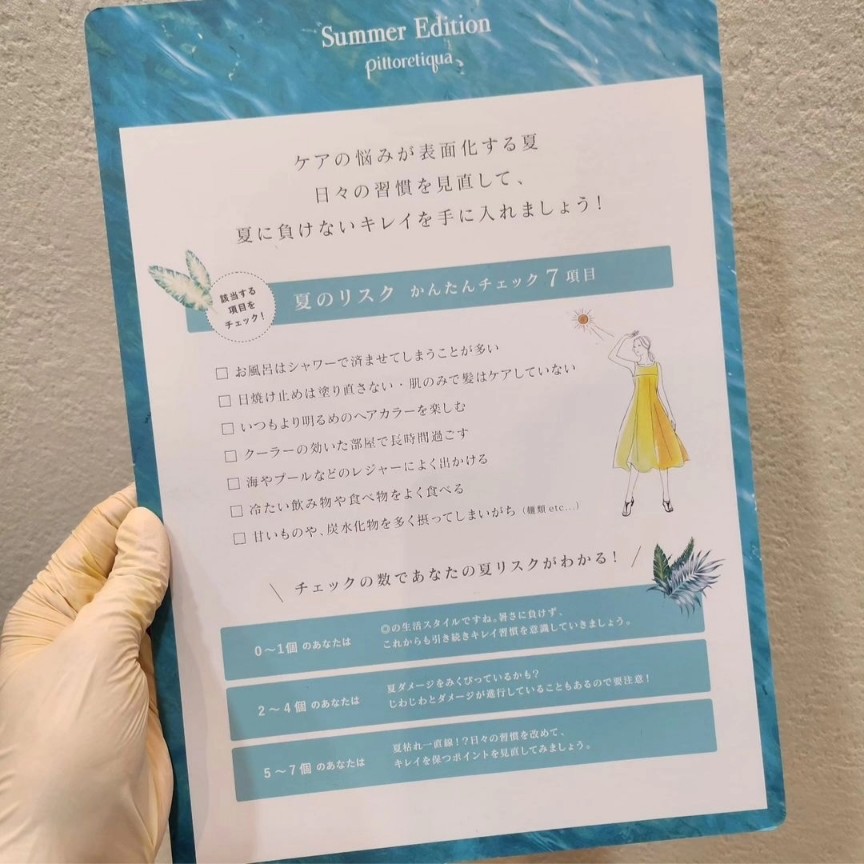 Summer Edition
pittoretiqua
ケアの悩みが表面化する夏
日々の習慣を見直して、
夏に負けないキレイを手に入れましょう！
該当する
項目を
チェック！
夏のリスク かんたんチェック7項目
□ お風呂はシャワーで済ませてしまうことが多い
□ 日焼け止めは塗り直さない・肌のみで髪はケアしていない
□ いつもより明るめのヘアカラーを楽しむ
□ クーラーの効いた部屋で長時間過ごす
□ 海やプールなどのレジャーによく出かける
□ 冷たい飲み物や食べ物をよく食べる
□ 甘いものや、炭水化物を多く摂ってしまいがち（麺類 etc…）
＼ チェックの数であなたの夏リスクがわかる！ ／
0〜1個 のあなたは
◎の生活スタイルですね。暑さに負けず、
これからも引き続きキレイ習慣を意識していきましょう。
2〜4個 のあなたは
夏ダメージをみくびっているかも？
じわじわとダメージが進行していることもあるので要注意！
5〜7個 のあなたは
夏枯れ一直線！？日々の習慣を改めて、
キレイを保つポイントを見直してみましょう。